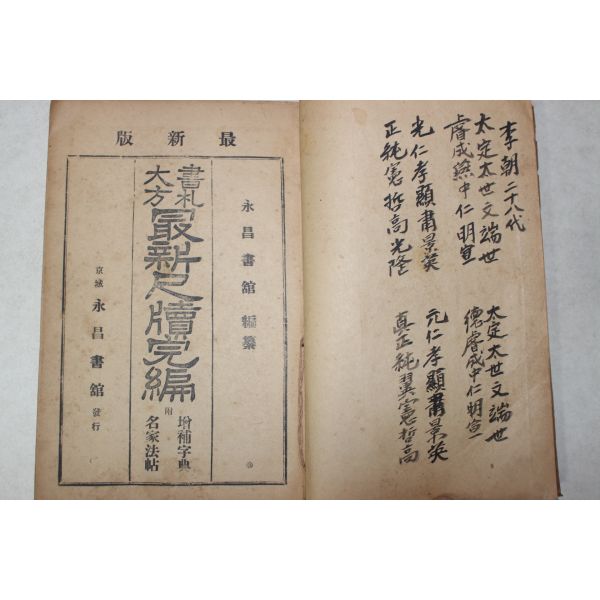 李朝二十八代
太定太世文端世
睿成燕中仁明宣
光仁孝顯肅景英
正純憲哲高光隆
太定太世文端世
德睿成中仁明宣
元仁孝顯肅景英
真正純翼憲哲高
最新版
永昌書館 編纂
書札
大方
最新尺牘完編
附
增補字典
名家法帖
京城 永昌書館 發行